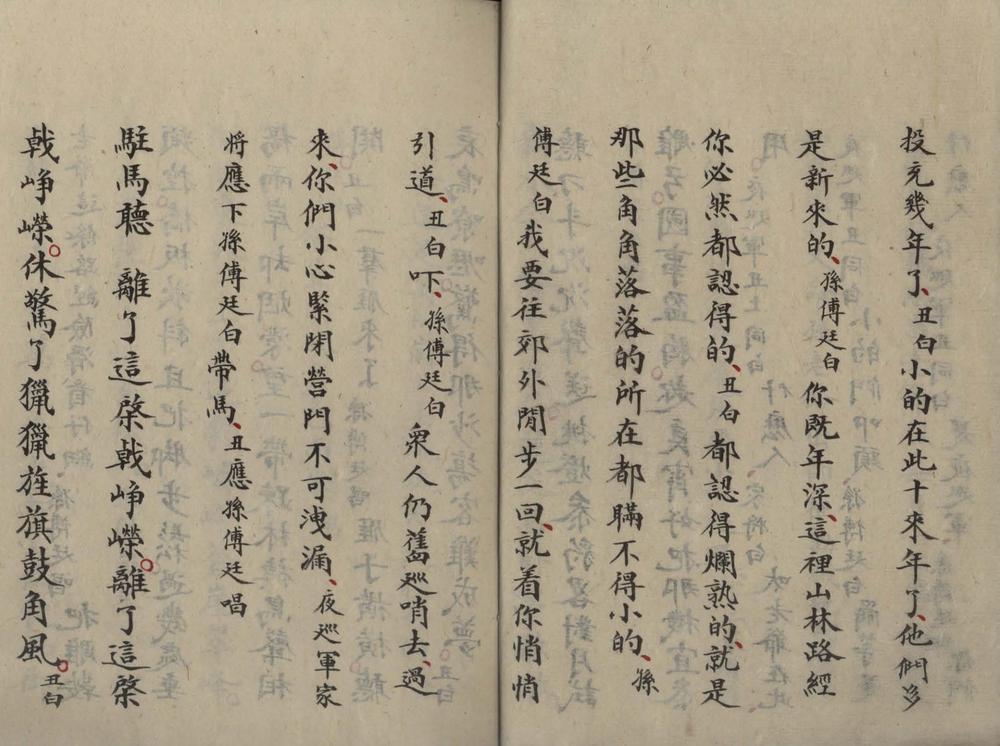 投充幾年了、丑白小的在此十來年了、他們多
是新來的、孫傅廷白你既年深、這裡山林路經
你必然都認得的、丑白都認得爛熟的、就是
那些角角落落的所在都瞞不得小的、孫
傅廷白我要往郊外閒步一回、就着你悄悄
引道、丑白吓、孫傅廷白衆人仍舊巡哨去、過
來、你們小心緊閉營門不可洩漏、夜巡軍家
将應下孫傅廷白帶馬、丑應孫傅廷唱
駐馬聽 離了這棨戟崢嶸。離了這棨
戟崢嶸。休驚了獵獵旌旗鼓角風。丑白